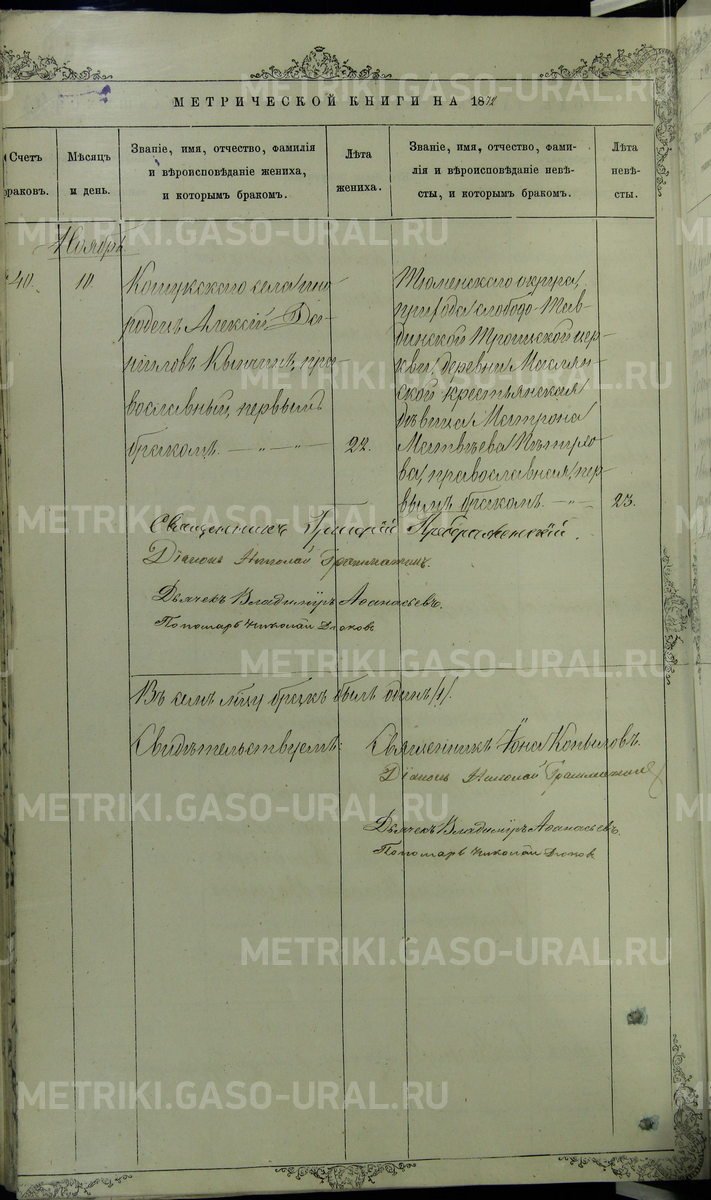 МЕТРИЧЕСКОЙ КНИГИ НА 1872
Счетъ браковъ.
Мѣсяцъ и день.
Званіе, имя, отчество, фамилія
и вѣроисповѣданіе жениха,
и которымъ бракомъ.
Лѣта
жениха.
Званіе, имя, отчество, фами-
лія и вѣроисповѣданіе невѣ-
сты, и которымъ бракомъ.
Лѣта
невѣ-
сты.
Ноябрь
40.
10
Кошукскаго села ино-
родецъ Алексій Да-
ніиловъ пра-
вославный, первымъ
бракомъ.
22.
Тюменскаго округа,
прихода слободо-Тав-
динской Троицкой цер-
кви, деревни Маслян-
ской крестьянская
дѣвица Матрона
Матвѣева
православная, пер-
вымъ бракомъ.
23.
Священникъ Григорій Преображенскій.
Діаконъ Николай
Дьячекъ Владиміръ Аѳанасьевъ.
Пономарь Николай
Въ семъ м-цѣ бракъ былъ одинъ /1/.
Свидѣтельствуемъ:
Священникъ Іона Копыловъ.
Діаконъ Николай
Дьячекъ Владиміръ Аѳанасьевъ.
Пономарь Николай
METRIKI.GASO-URAL.RU